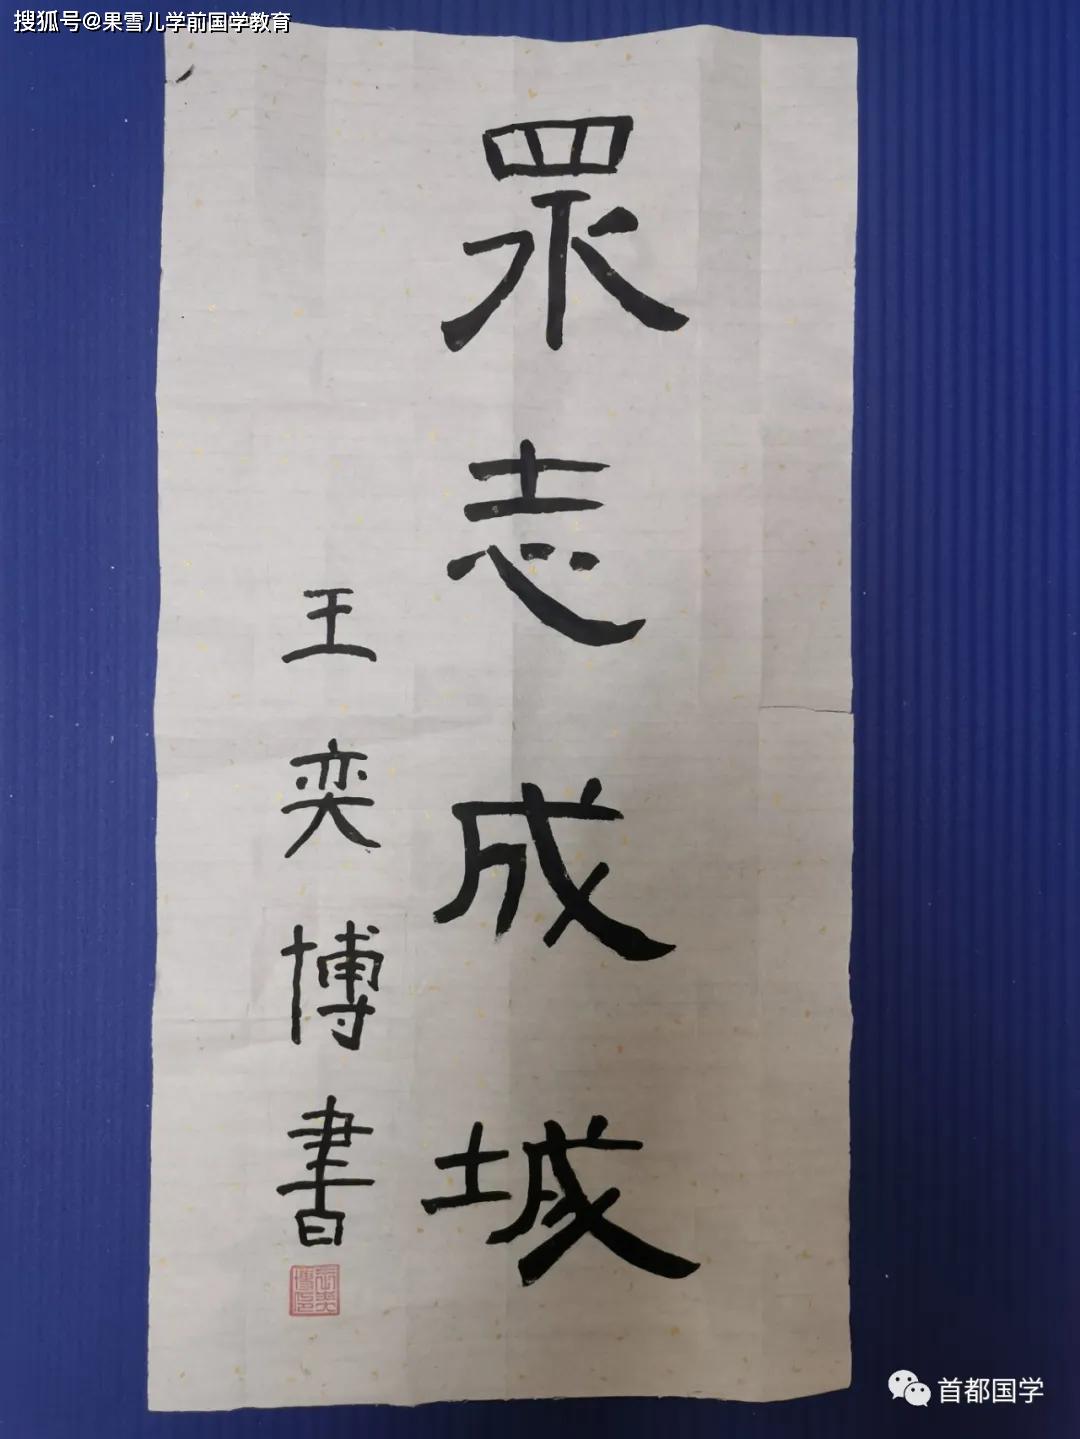 搜狐号@果雪儿学前国学教育
眾志成城
王奕博書
首都国学